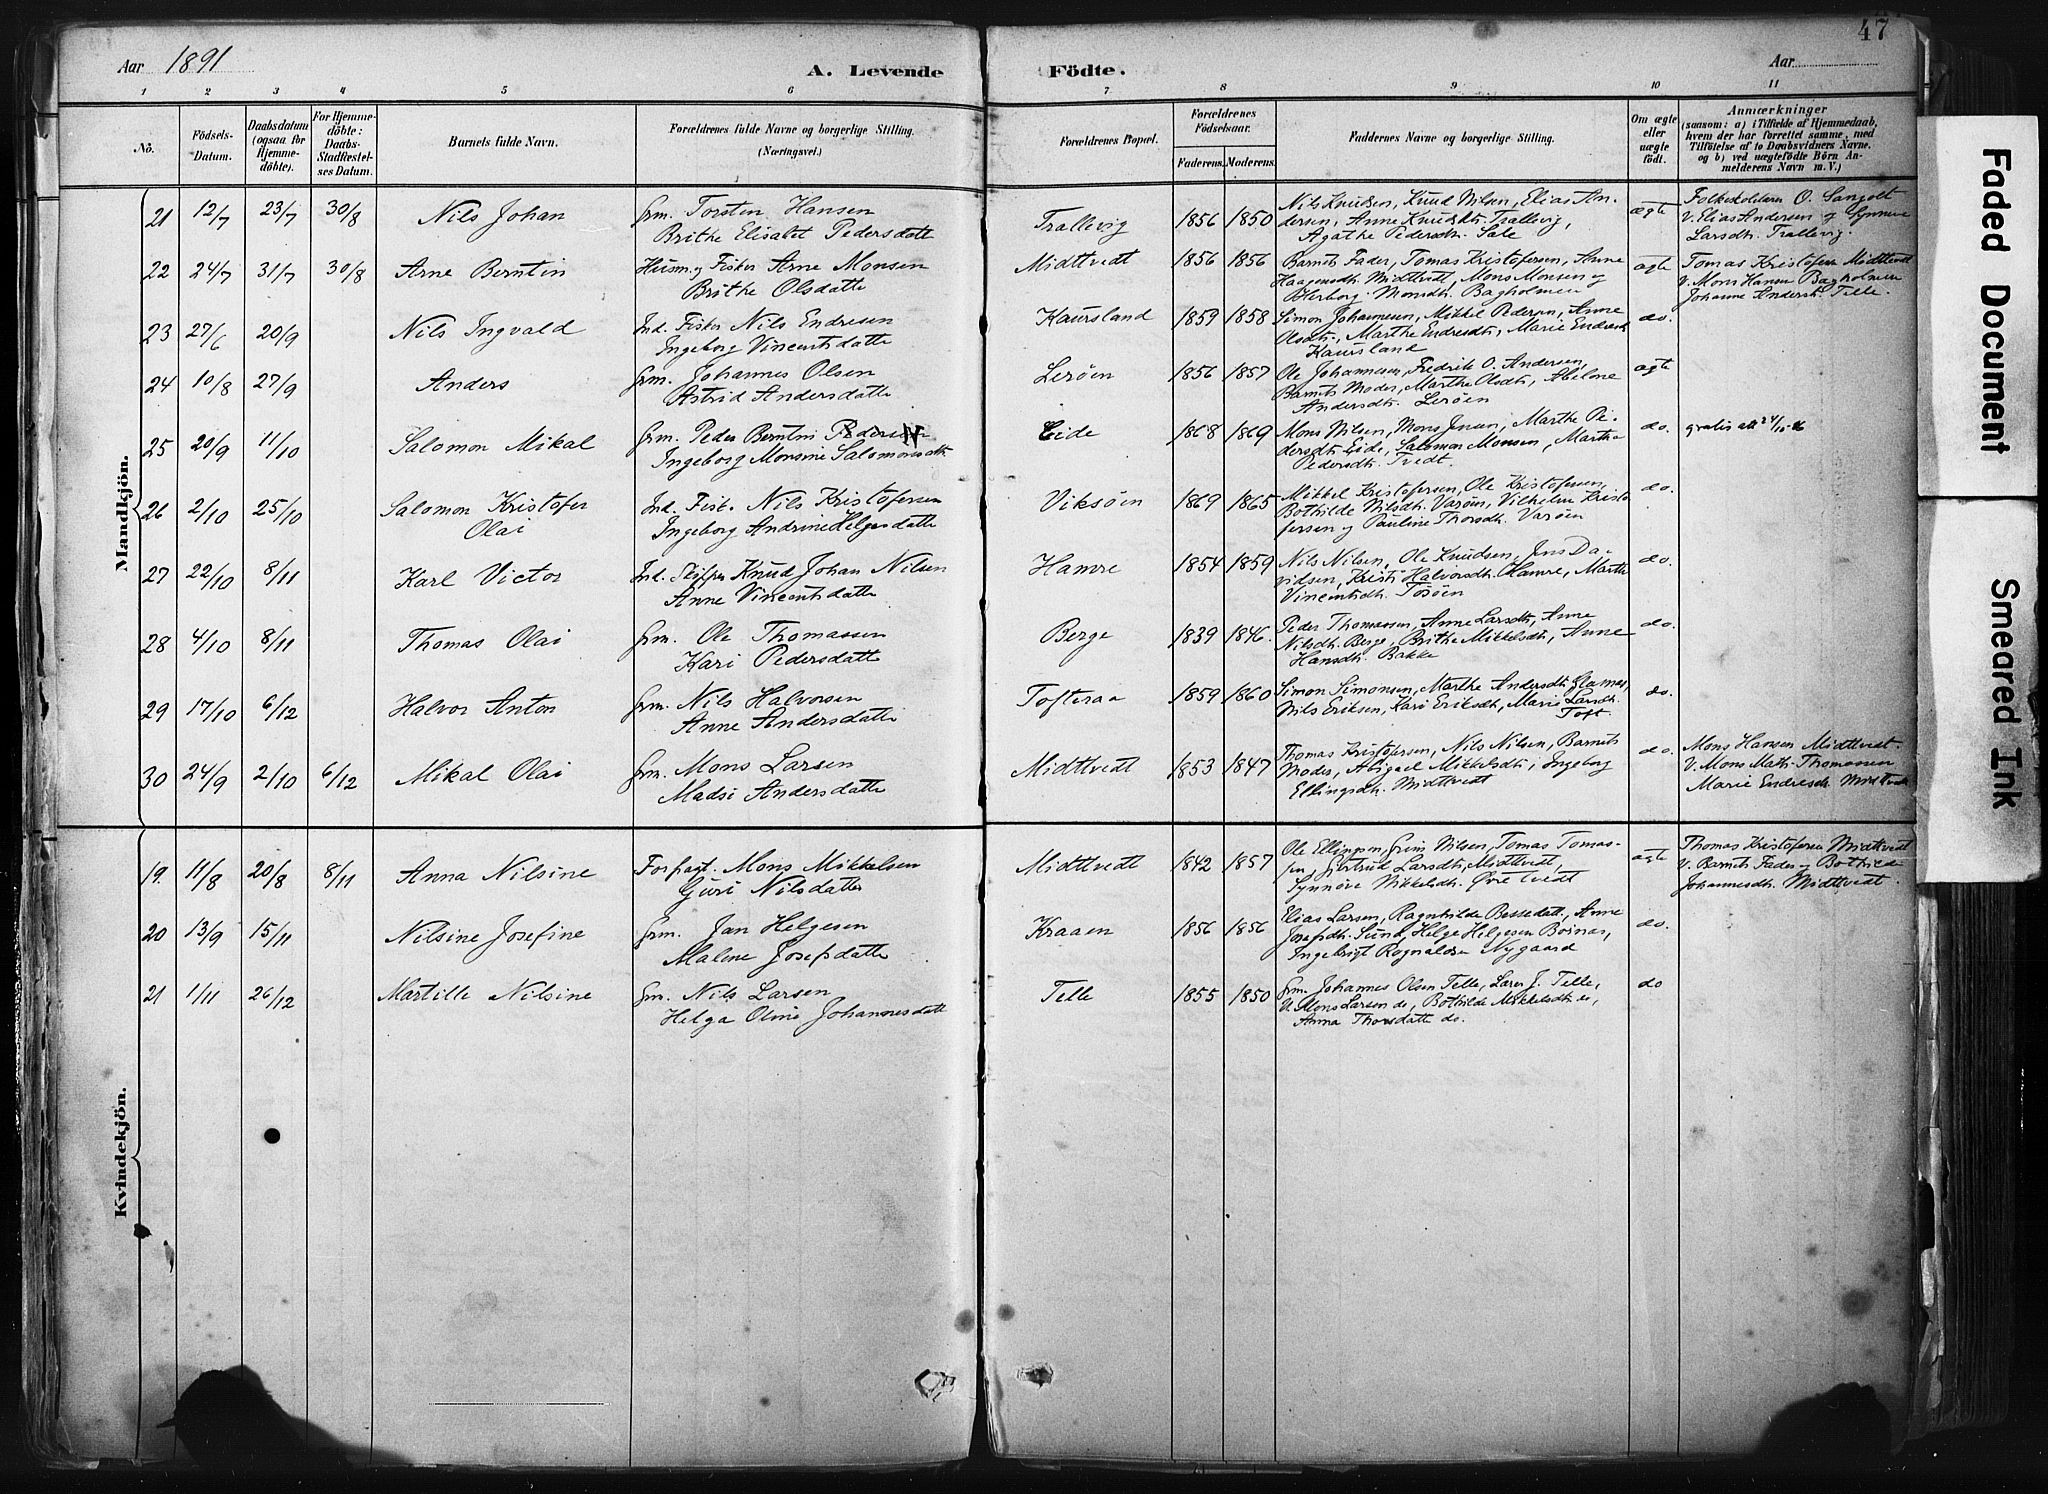 47
Aar 1891
A. Levende
Födte.
Aar
1 2 3 4 5 6 7 8 9 10 11
No.
Födsels-Datum.
Daabsdatum (ogsaa for Hjemme-döbte).
For Hjemme-döbte: Daabs-Stadfæstel-ses Datum.
Barnets fulde Navn.
Forældrenes fulde Navne og borgerlige Stilling.
(Næringsvei.)
Forældrenes Bopæl.
Forældrenes Födselsaar.
Faderens. Moderens.
Faddernes Navne og borgerlige Stilling.
Om ægte eller uægte födt.
Anmærkninger
(saasom: a) i Tilfælde af Hjemmedaab,
hvem der har forrettet samme, med
Tilföielse af to Daabsvidners Navne.
og b) ved uægtefödte Börn An-
melderens Navn m. V.)
Mandkjön.
21 12/7 23/7 30/8 Nils Johan Grm. Torsten Hansen Trallevig 1856 1850 Nils Knudsen, Knud Nilsen, Elias An- ægte Folkeskolelærer O. Sangolt
Brithe Elisabet Pedersdatt dersen, Anne Knudsdt. Trallevig, V. Elias Andersen og Synneve
Agathe Pedersdt. Sale Larsdt. Trallevig.
22 24/7 31/7 30/8 Arne Berntin Husm. og Fisker Arne Monsen Midttvedt 1856 1856 Barnets Fader, Tomas Kristofersen, Anne ægte Tomas Kristofersen Midttvedt
Brithe Olsdatte Haagensdt. Midttvedt, Mons Monsen og V. Mons Hansen Bagholmen
Herborg Monsdt. Bagholmen Johanne Andersdt. Telle.
23 27/6 20/9 Nils Ingvald Ind. Fisker Nils Endresen Kaursland 1859 1858 Simon Johannesen, Mikkel Pedersen, Anne do.
Ingeborg Vincentsdatte Olsdt., Marthe Endresdt., Marie Endresdt.
Kaursland
24 10/8 27/9 Anders Grm. Johannes Olsen Leröen 1856 1857 Ole Johannesen, Fredrik O. Andersen, ægte
Astrid Andersdatte Barnets Moder, Marthe Olsdt., Abelone
Andersdt. Leröen
25 20/9 11/10 Salomon Mikal Grm. Peder Berntin Pedersen Eide 1868 1869 Mons Nilsen, Mons Jensen, Marthe Pe- do. gratis att 24/10-16
Ingeborg Monsine Salomonsdt. dersdt. Eide, Salomon Monsen, Martha
Pedersdt. Tvedt.
26 2/10 25/10 Salomon Kristofer Ind. Fisk. Nils Kristofersen Viksöen 1869 1865 Mikkel Kristofersen, Ole Kristofersen, do.
Olai Ingeborg Andrine Helgesdatte Bothilde Nilsdt. Varöen, Vilhelm Kristo-
fersen og Pauline Thorsdt. Varöen
27 22/10 8/11 Karl Victor Ind. Skipper Knud Johan Nilsen Hamre 1854 1859 Nils Nilsen, Ole Knudsen, Jens Da- do.
Anne Vincentsdatte vidsen, Kristi Halvorsdt. Hamre, Marthe
Vincentsdt. Tösöen
28 4/10 8/11 Thomas Olai Grm. Ole Thomassen Berge 1839 1846. Peder Thomassen, Anne Larsdt., Anne do.
Kari Pedersdatte Nilsdt. Berge, Brithe Mikkelsdt., Anne
Hansdt. Bakke
29 17/10 6/12 Halvor Anton Grm. Nils Halvorsen Tofteraa 1859 1860 Simon Simonsen, Marthe Andersdt. Glesnæs, do.
Anne Andersdatte Nils Eriksen, Kari Eriksdt., Mari Larsdt.
Toft.
30 24/9 2/10 6/12 Mikal Olai Grm. Mons Larsen Midttvedt 1853 1847 Thomas Kristofersen, Nils Nilsen, Barnets do. Mons Hansen Midttvedt.
Madsi Andersdatte Moder, Abigael Mikkelsdt., Ingeborg V. Mons Math. Thomassen
Ellingsdt. Midttvedt Marie Endresdt. Midttvedt
Kvindekjön.
19. 11/8 20/8 8/11 Anna Nilsine Forpagt. Mons Mikkelsen Midttvedt 1842 1857 Ole Ellingsen, Grim Nilsen, Tomas Tomas- ægte Thomas Kristofersen Midttvedt
Guri Nilsdatte sen, Gjertrud Larsdt., Midttvedt, V. Barnets Fader og Bothilde
Synnöve Mikkelsdt. Övre Tvedt Johannesdt. Midttvedt.
20 13/9 15/11 Nilsine Josefine Grm. Jan Helgesen Kraaen 1856 1856 Elias Larsen, Ragnhilde Bessedatt., Anne do.
Malene Josefsdatte Josefsdt. Sund, Helge Helgesen Boinæs,
Ingebrigt Rognaldsen Nygaard
21 1/11 26/12 Martille Nilsine Grm. Nils Larsen Telle 1855 1850 Grm. Johannes Olsen Telle, Lars J. Telle, do
Helga Oline Johannesdatt U. Mons Larsen do, Bothilde Mikkelsdt do,
Anna Thorsdatte do.
Faded Document
Smeared Ink